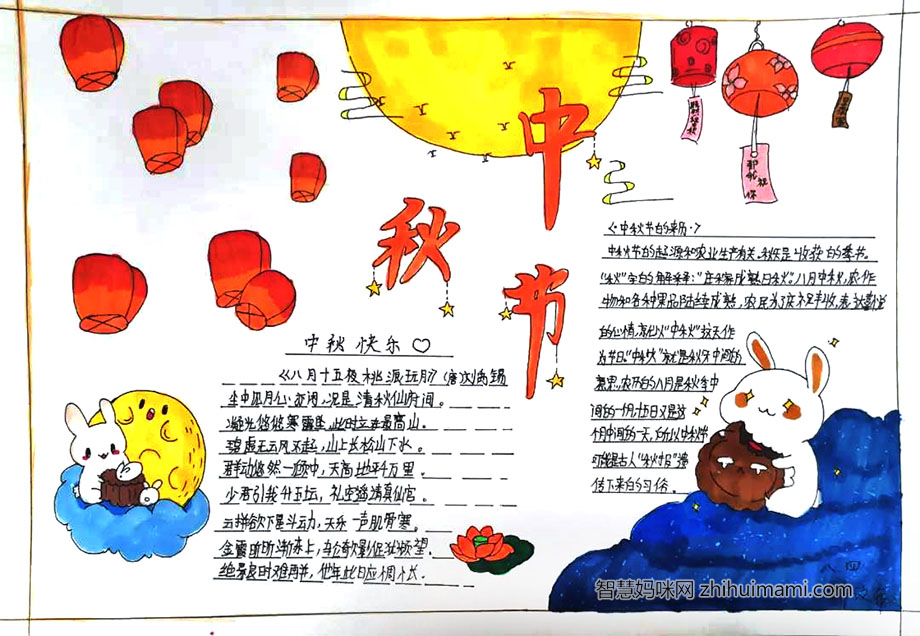 中
秋
节
中秋快乐♡
《八月十五夜桃源玩月》(唐)刘禹锡
尘中见月心亦闲,况是清秋仙府间。
凝光悠悠寒露坠,此时立在最高山。
碧虚无云风不起,山上长松山下水。
群动悠然一顾中,天高地平千万里。
少君引我升玉坛,礼空遥请真仙官。
云軿欲下星斗动,天乐一声肌骨寒。
金霞昕昕渐东上,轮欹影促犹频望。
绝景良时难再并,他年此日应惆怅。
《中秋节的来历》
中秋节的起源和农业生产有关。秋天是收获的季节。
"秋"字的解释是:"庄稼成熟曰秋"。八月中秋,农作
物和各种果品陆续成熟,农民为了庆祝丰收,表达喜悦
的心情,就以"中秋"这天作
为节日。"中秋"就是秋天中间的
意思,农历的八月是秋季中
间的一个月,十五日又是这
个月中间的一天,所以中秋节
可能是古人"秋报"遗
传下来的习俗。
八 四
智慧妈咪网 zhihuimami.com